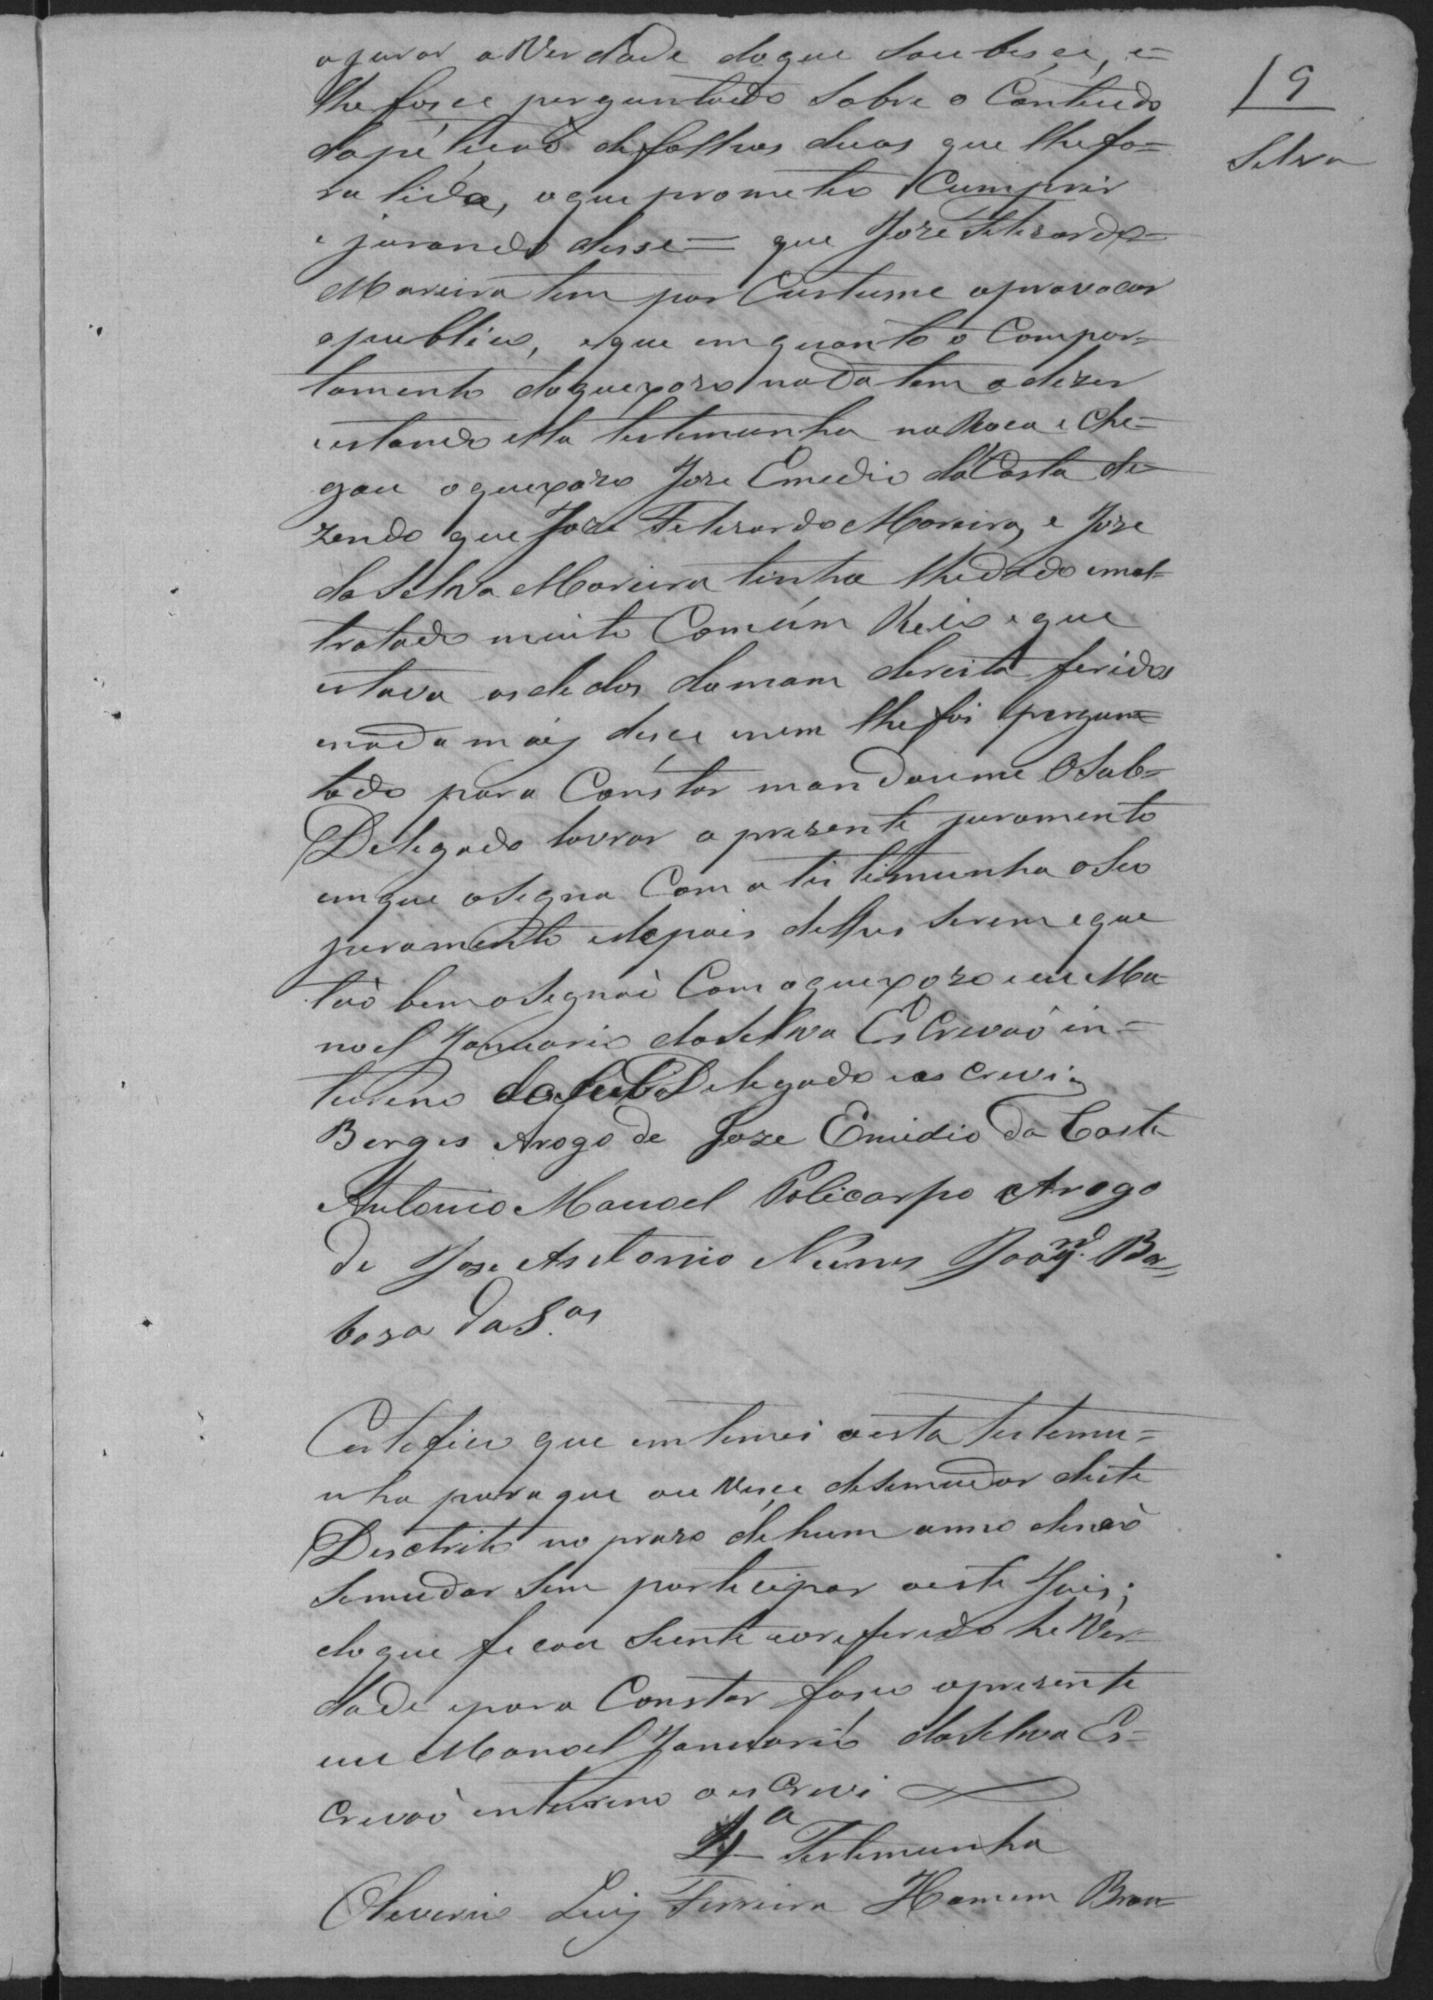 19
Silva
ajurar averdade doque Soubesce, e=
lhe fosce perguntado Sobre o Contiudo
dapéticaõ defolhas duas que lhefo=
ra lida, oque prometeo Cumprir
e jurando disse= que Joze Felisardo=
Moreira tem por Custume aprovocar
opublico, eque emquanto o Compor=
tamento doquexozo nada tem adizer
estando ella testemunha na Roca e che=
gou oquexozo Joze Emedio da Costa de=
zendo que Joze Felisardo Moreira, e Joze
da Silva Moreira tinha lhedado emal=
tratado muito Comúm Reio eque
estava osdedos damam dereita feridos
enada maiz disce enem lhefoi pergun=
tado para Constar mandoume OSub=
Delegado lavrar apresente juramento
emque asegna Com a testimunha oSeo
juramento edepois delhes Serem eque
taõ bem asegnaõ Com oquexozo eeu Ma=
noel Januario da Silva Escrevaõ in=
tireno do Sub Delegado oescrevi
Borges Arogo de Joze Emidio da Costa
Antonio Manoel Policarpo Arogo
de Joze Antonio Nunes Joaq.m Ba=
boza da S.as
Certefico que emtimei aesta testemu=
nha paraque ouvesce desemudar deste
Desctrito no prazo dehum anno denaõ
Semudar Sem partecipar aeste Juis;
doque ficou Siente eoreferido he Ver=
dade epara Constar fasco apresente
eu Manoel Januario da Silva Es=
crevaõ entireno oescrevi
4a Testemunha
Oleverio Luiz Ferreira Homem Bran=